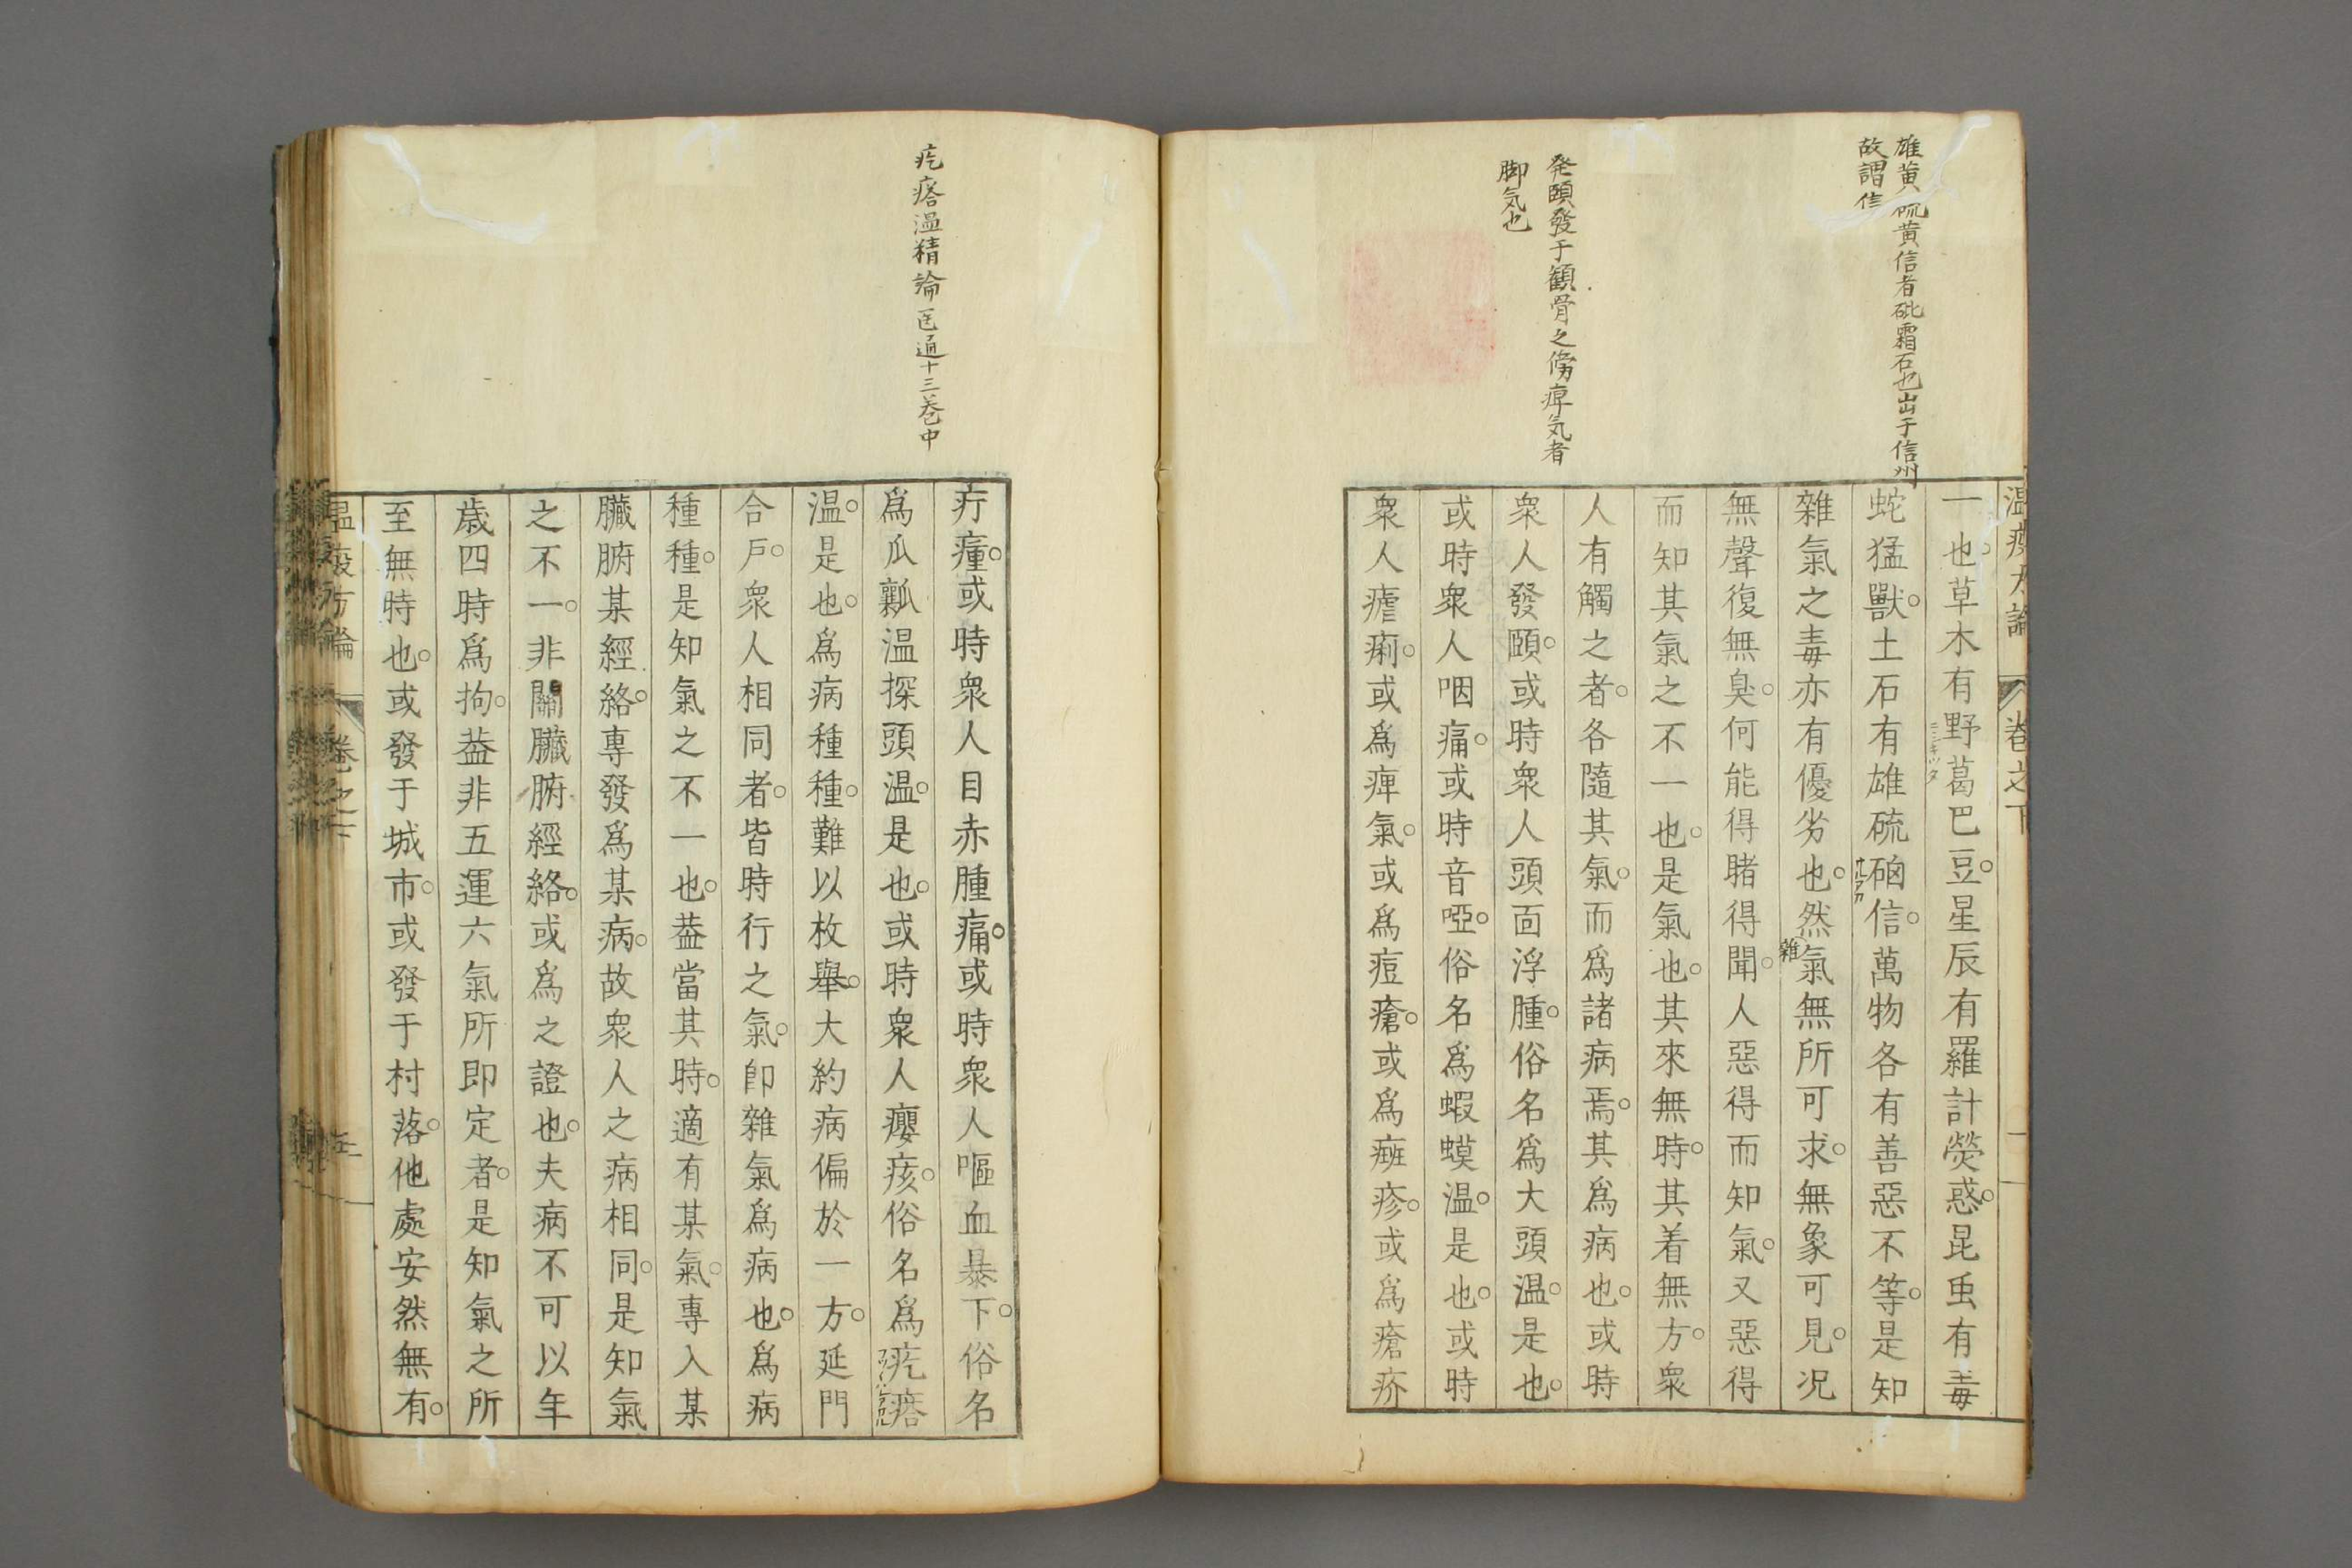 雄黄硫黄信者砒霜石也出于信州
故謂信
発頤發于顴骨之傍痺気者
脚気也
温疫方論 卷之下
一也。草木有野葛巴豆。星辰有羅計熒惑。昆虫有毒
蛇猛獸。土石有雄硫硇信。萬物各有善惡不等。是知
雜氣之毒亦有優劣也。然雜氣無所可求。無象可見。况
無聲復無臭。何能得睹得聞。人惡得而知氣。又惡得
而知其氣之不一也。是氣也。其來無時。其着無方。衆
人有觸之者。各隨其氣。而爲諸病焉。其爲病也。或時
衆人發頤。或時衆人頭面浮腫。俗名爲大頭温。是也。
或時衆人咽痛。或時音啞。俗名爲蝦蟆温。是也。或時
衆人瘧痢。或爲痺氣。或爲痘瘡。或爲斑疹。或爲瘡疥
疙瘩温精論医通十三巻中
疔瘇。或時衆人目赤腫痛。或時衆人嘔血暴下。俗名
爲瓜瓤温探頭温。是也。或時衆人癭痎。俗名爲疙瘩
温。是也。爲病種種。難以枚舉。大約病偏於一方。延門
合戶。衆人相同者。皆時行之氣。卽雜氣爲病也。爲病
種種。是知氣之不一也。葢當其時。適有某氣。專入某
臟腑某經絡。專發爲某病。故衆人之病相同。是知氣
之不一。非關臟腑經絡。或爲之證也。夫病不可以年
歳四時爲拘。葢非五運六氣所即定者。是知氣之所
至無時也。或發于城市。或發于村落。他處安然無有。
温疫方論 卷之下